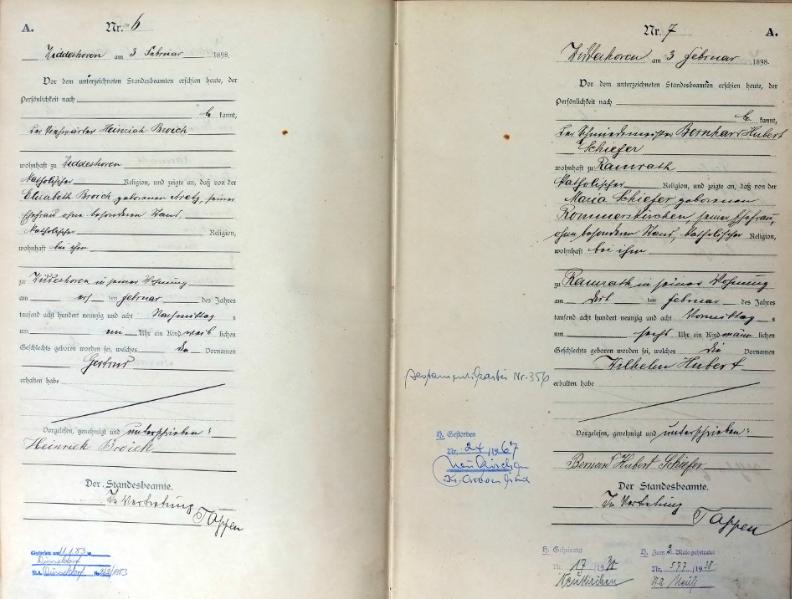 A.
Nr. 6
am 3 Februar 1898.
Vor dem unterzeichneten Standesbeamten erschien heute, der
Persönlichkeit nach
be kannt,
der Heinrich Broich
wohnhaft zu
katholischer Religion, und zeigte an, daß von der
Elisabeth Broich geborenen seiner
Ehefrau ohne besonderen Stand,
katholischer Religion,
wohnhaft bei ihm
zu in seiner Wohnung
am ten Februar des Jahres
tausend acht hundert neunzig und acht Nachmittags
um ein Uhr ein Kind weib lichen
Geschlechts geboren worden sei, welches den Vornamen
erhalten habe
Vorgelesen, genehmigt und unterschrieben:
Heinrich Broich
Der Standesbeamte.
In Vertretung
Tappen
Gestorben am 11.1.53
Düsseldorf
Düsseldorf
Nr. 7
A.
am 3 Februar 1898.
Vor dem unterzeichneten Standesbeamten erschien heute, der
Persönlichkeit nach
be kannt,
der Schmiedemeister Bernhard Hubert
Schiefer
wohnhaft zu Ramrath
katholischer Religion, und zeigte an, daß von der
Maria Schiefer geborenen
Rommerskirchen, seiner Ehefrau,
ohne besonderen Stand, katholischer Religion,
wohnhaft bei ihm
zu Ramrath in seiner Wohnung
am ten Februar des Jahres
tausend acht hundert neunzig und acht Vormittags
um sechs Uhr ein Kind männ lichen
Geschlechts geboren worden sei, welches die Vornamen
Wilhelm Hubert
erhalten habe
Nr. 356
Vorgelesen, genehmigt und unterschrieben:
Hubert Schiefer
Der Standesbeamte.
In Vertretung
Tappen
Gestorben
Nr. 24/1967
Neukirchen
Nr. 17/19
Neukirchen
Nr. 577/19